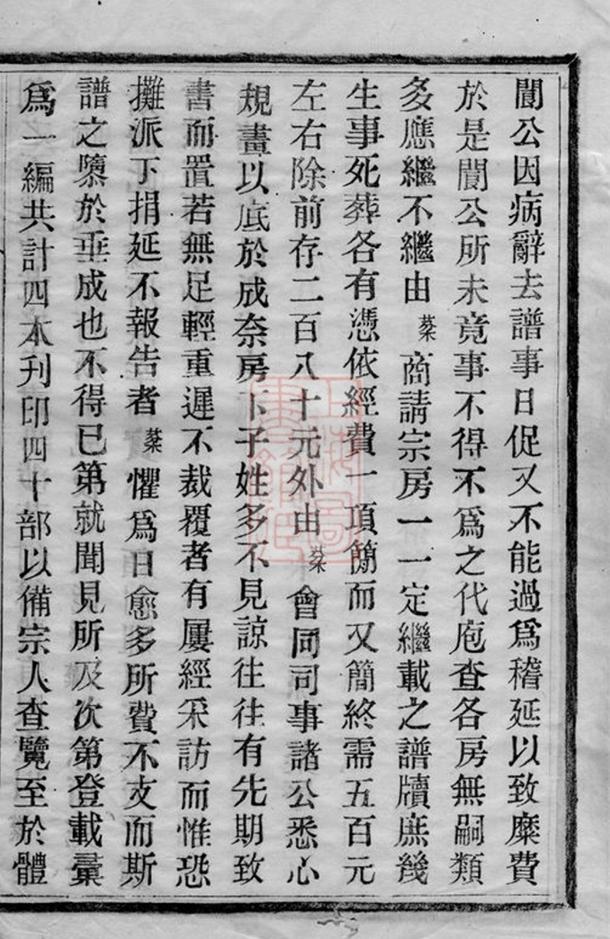 閶公因病辭去譜事日促又不能過爲稽延以致糜費
於是閶公所未竟事不得不爲之代庖查各房無嗣類
多應繼不繼由棻商請宗房一一定繼載之譜牘庶幾
生事死葬各有憑依經費一項簡而又簡終需五百元
左右除前存二百八十元外由棻會同司事諸公悉心
規畫以底於成奈房下子姓多不見諒往往有先期致
書而置若無足輕重遲不裁覆者有屢經采訪而惟恐
攤派丁捐延不報告者棻懼爲日愈多所費不支而斯
譜之隳於垂成也不得已第就聞見所及次第登載彙
爲一編共計四本刊印四十部以備宗人查覽至於體